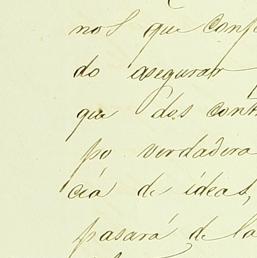 nos que conf
do asegurar
que dos cont
po verdadera
cia de ideas,
pasará de la